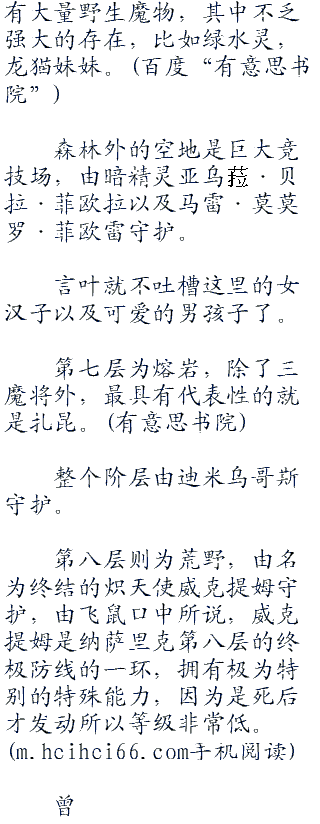 有大量野生魔物，其中不乏
强大的存在，比如绿水灵，
龙猫妹妹。(百度“有意思书
院”)
森林外的空地是巨大竞
技场，由暗精灵亚乌菈·贝
拉·菲欧拉以及马雷·莫莫
罗·菲欧雷守护。
言叶就不吐槽这里的女
汉子以及可爱的男孩子了。
第七层为熔岩，除了三
魔将外，最具有代表性的就
是扎昆。(有意思书院)
整个阶层由迪米乌哥斯
守护。
第八层则为荒野，由名
为终结的炽天使威克提姆守
护，由飞鼠口中所说，威克
提姆是纳萨里克第八层的终
极防线的一环，拥有极为特
别的特殊能力，因为是死后
才发动所以等级非常低。
(m.hcihci66.com手机阅读)
曾